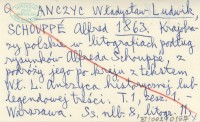 ANCZYC Władysław Ludwik,
SCHOUPPÉ Alfred 1863. Krajobra-
zy polskie w litografiach podług
rysunków Alfreda Schouppé, z
podróży jego po kraju z tekstem
Wł. L. Anczyca historycznej lub
legendowej treści. T 1, zesz.
Warszawa. Ss. nlb 8, litogr. 11,